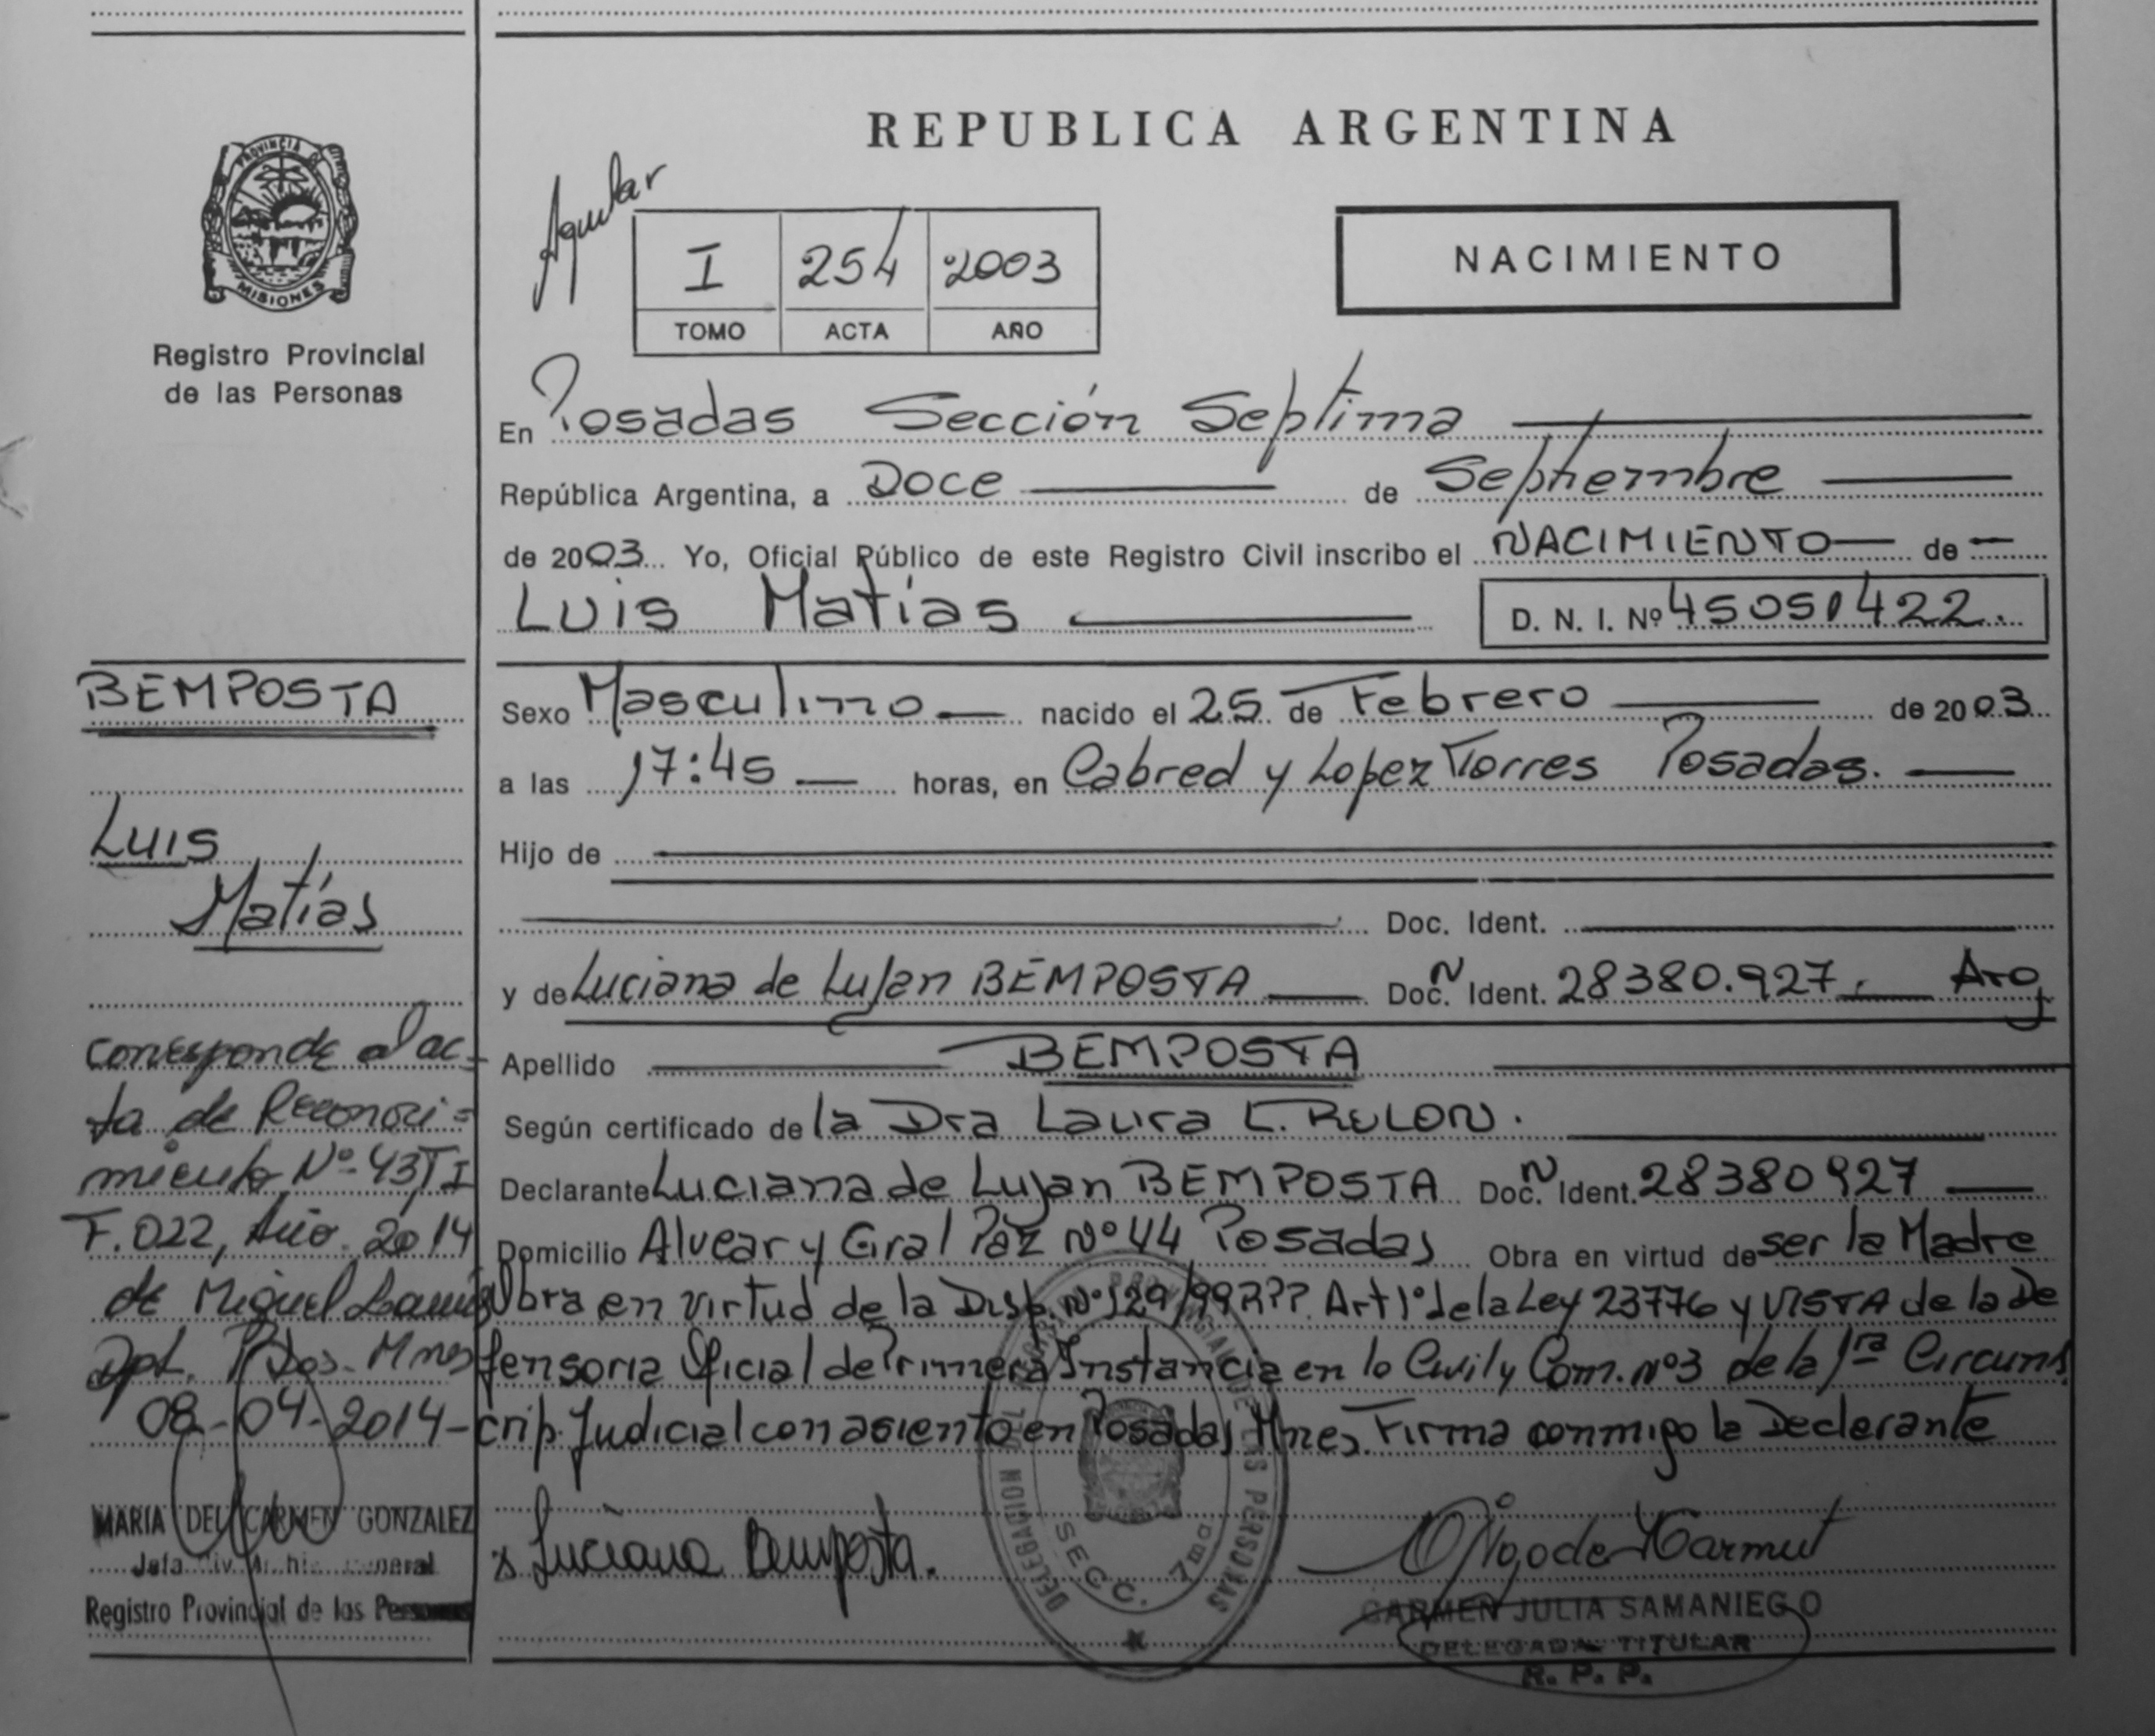 REPUBLICA ARGENTINA
PROVINCIA DE
MISIONES
Registro Provincial
de las Personas
Aguilar
I 254 2003
TOMO ACTA AÑO
NACIMIENTO
En Posadas Sección Septima
República Argentina, a Doce de Septiembre
de 2003 Yo, Oficial Público de este Registro Civil inscribo el NACIMIENTO de
Luis Matias D. N. I. Nº 45051422.
Sexo Masculino nacido el 25 de Febrero de 2003
a las 17:45 horas, en Cabred y Lopez Torres Posadas.
Hijo de
Doc. Ident.
y de Luciana de Lujan BEMPOSTA Doc. N Ident. 28380.927. Arg
Apellido BEMPOSTA
Según certificado de la Dra Laura L. RELON.
Declarante Luciana de Lujan BEMPOSTA Doc. N Ident. 28380927
Domicilio Alvear y Gral Paz Nº 44 Posadas Obra en virtud de ser la Madre
Obra en virtud de la Disp. Nº 129/99 Art 1º de la Ley 23776 y VISTA de la De
fensoria Oficial de Primera Instancia en lo Civil y Com. Nº 3 de la 1ra Circuns
crip. Judicial con asiento en Posadas Mnes. Firma conmigo la Declarante
x Luciana Bemposta.
DELEGACION DEL REGISTRO PROVINCIAL DE LAS PERSONAS
SECC. 7ma
CARMEN JULIA SAMANIEGO
DELEGADA TITULAR
R. P. P.
BEMPOSTA
Luis
Matías
corresponde al ac-
ta de Reconoci=
miento Nº 43, T I
F. 022, Año 2014
de Miguel
Dpt. Pdas. Mnes
08-04-2014-
MARIA DEL CARMEN GONZALEZ
Jefa Div. Archivo General
Registro Provincial de las Personas